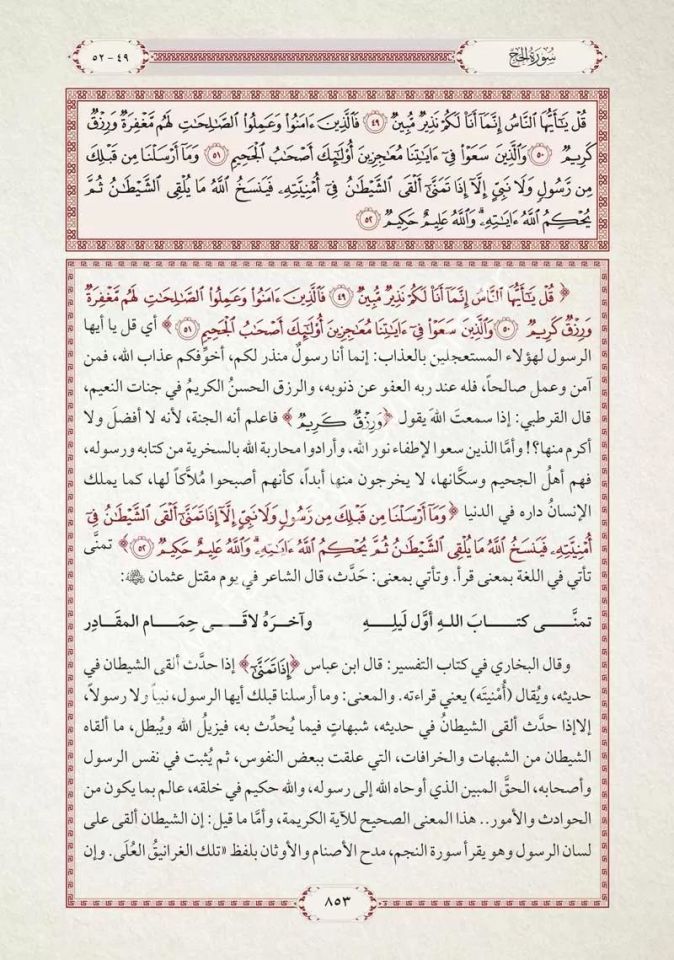 سُورَةُ الحَجّ
٤٩ - ٥٢
قُلْ يَٰٓأَيُّهَا ٱلنَّاسُ إِنَّمَآ أَنَا۠ لَكُمْ نَذِيرٌ مُّبِينٌ ٤٩ فَٱلَّذِينَ ءَامَنُوا۟ وَعَمِلُوا۟ ٱلصَّٰلِحَٰتِ لَهُم مَّغْفِرَةٌ وَرِزْقٌ
كَرِيمٌ ٥٠ وَٱلَّذِينَ سَعَوْا۟ فِىٓ ءَايَٰتِنَا مُعَٰجِزِينَ أُو۟لَٰٓئِكَ أَصْحَٰبُ ٱلْجَحِيمِ ٥١ وَمَآ أَرْسَلْنَا مِن قَبْلِكَ
مِن رَّسُولٍ وَلَا نَبِىٍّ إِلَّآ إِذَا تَمَنَّىٰٓ أَلْقَى ٱلشَّيْطَٰنُ فِىٓ أُمْنِيَّتِهِۦ فَيَنسَخُ ٱللَّهُ مَا يُلْقِى ٱلشَّيْطَٰنُ ثُمَّ
يُحْكِمُ ٱللَّهُ ءَايَٰتِهِۦ ۗ وَٱللَّهُ عَلِيمٌ حَكِيمٌ ٥٢
﴿ قُلْ يَٰٓأَيُّهَا ٱلنَّاسُ إِنَّمَآ أَنَا۠ لَكُمْ نَذِيرٌ مُّبِينٌ ٤٩ فَٱلَّذِينَ ءَامَنُوا۟ وَعَمِلُوا۟ ٱلصَّٰلِحَٰتِ لَهُم مَّغْفِرَةٌ
وَرِزْقٌ كَرِيمٌ ٥٠ وَٱلَّذِينَ سَعَوْا۟ فِىٓ ءَايَٰتِنَا مُعَٰجِزِينَ أُو۟لَٰٓئِكَ أَصْحَٰبُ ٱلْجَحِيمِ ٥١ ﴾ أي قل يا أيها
الرسول لهؤلاء المستعجلين بالعذاب: إنما أنا رسولٌ منذر لكم، أخوِّفكم عذاب الله، فمن
آمن وعمل صالحاً، فله عند ربه العفو عن ذنوبه، والرزق الحسنُ الكريمُ في جنات النعيم،
قال القرطبي: إذا سمعتَ اللهَ يقول ﴿وَرِزْقٌ كَرِيمٌ﴾ فاعلم أنه الجنة، لأنه لا أفضلَ ولا
أكرم منها؟! وأمَّا الذين سعوا لإطفاء نور الله، وأرادوا محاربة الله بالسخرية من كتابه ورسوله،
فهم أهلُ الجحيم وسكَّانها، لا يخرجون منها أبداً، كأنهم أصبحوا مُلاَّكاً لها، كما يملك
الإنسانُ داره في الدنيا ﴿وَمَآ أَرْسَلْنَا مِن قَبْلِكَ مِن رَّسُولٍ وَلَا نَبِىٍّ إِلَّآ إِذَا تَمَنَّىٰٓ أَلْقَى ٱلشَّيْطَٰنُ فِىٓ
أُمْنِيَّتِهِۦ فَيَنسَخُ ٱللَّهُ مَا يُلْقِى ٱلشَّيْطَٰنُ ثُمَّ يُحْكِمُ ٱللَّهُ ءَايَٰتِهِۦ ۗ وَٱللَّهُ عَلِيمٌ حَكِيمٌ ٥٢ ﴾ تمنَّى
تأتي في اللغة بمعنى قرأ. وتأتي بمعنى: حَدَّث، قال الشاعر في يوم مقتل عثمان ﷺ:
تمنَّـــى كتـــابَ اللـهِ أوَّل لَيلِـــهِ وآخـرَهُ لاقَـــى حِمَـــام المقَـادِر
وقال البخاري في كتاب التفسير: قال ابن عباس ﴿إِذَا تَمَنَّىٰٓ﴾ إذا حدَّث ألقى الشيطان في
حديثه، ويُقال (أُمْنيتَه) يعني قراءته. والمعنى: وما أرسلنا قبلك أيها الرسول، نبياً ولا رسولاً،
إلاإذا حدَّث ألقى الشيطانُ في حديثه، شبهاتٍ فيما يُحدِّث به، فيزيلُ الله ويُبطل، ما ألقاه
الشيطان من الشبهات والخرافات، التي علقت ببعض النفوس، ثم يُثبت في نفس الرسول
وأصحابه، الحقَّ المبين الذي أوحاه الله إلى رسوله، والله حكيم في خلقه، عالم بما يكون من
الحوادث والأمور.. هذا المعنى الصحيح للآية الكريمة، وأمَّا ما قيل: إن الشيطان ألقى على
لسان الرسول وهو يقرأ سورة النجم، مدح الأصنام والأوثان بلفظ «تلك الغرانيقُ العُلَى. وإن
٨٥٣